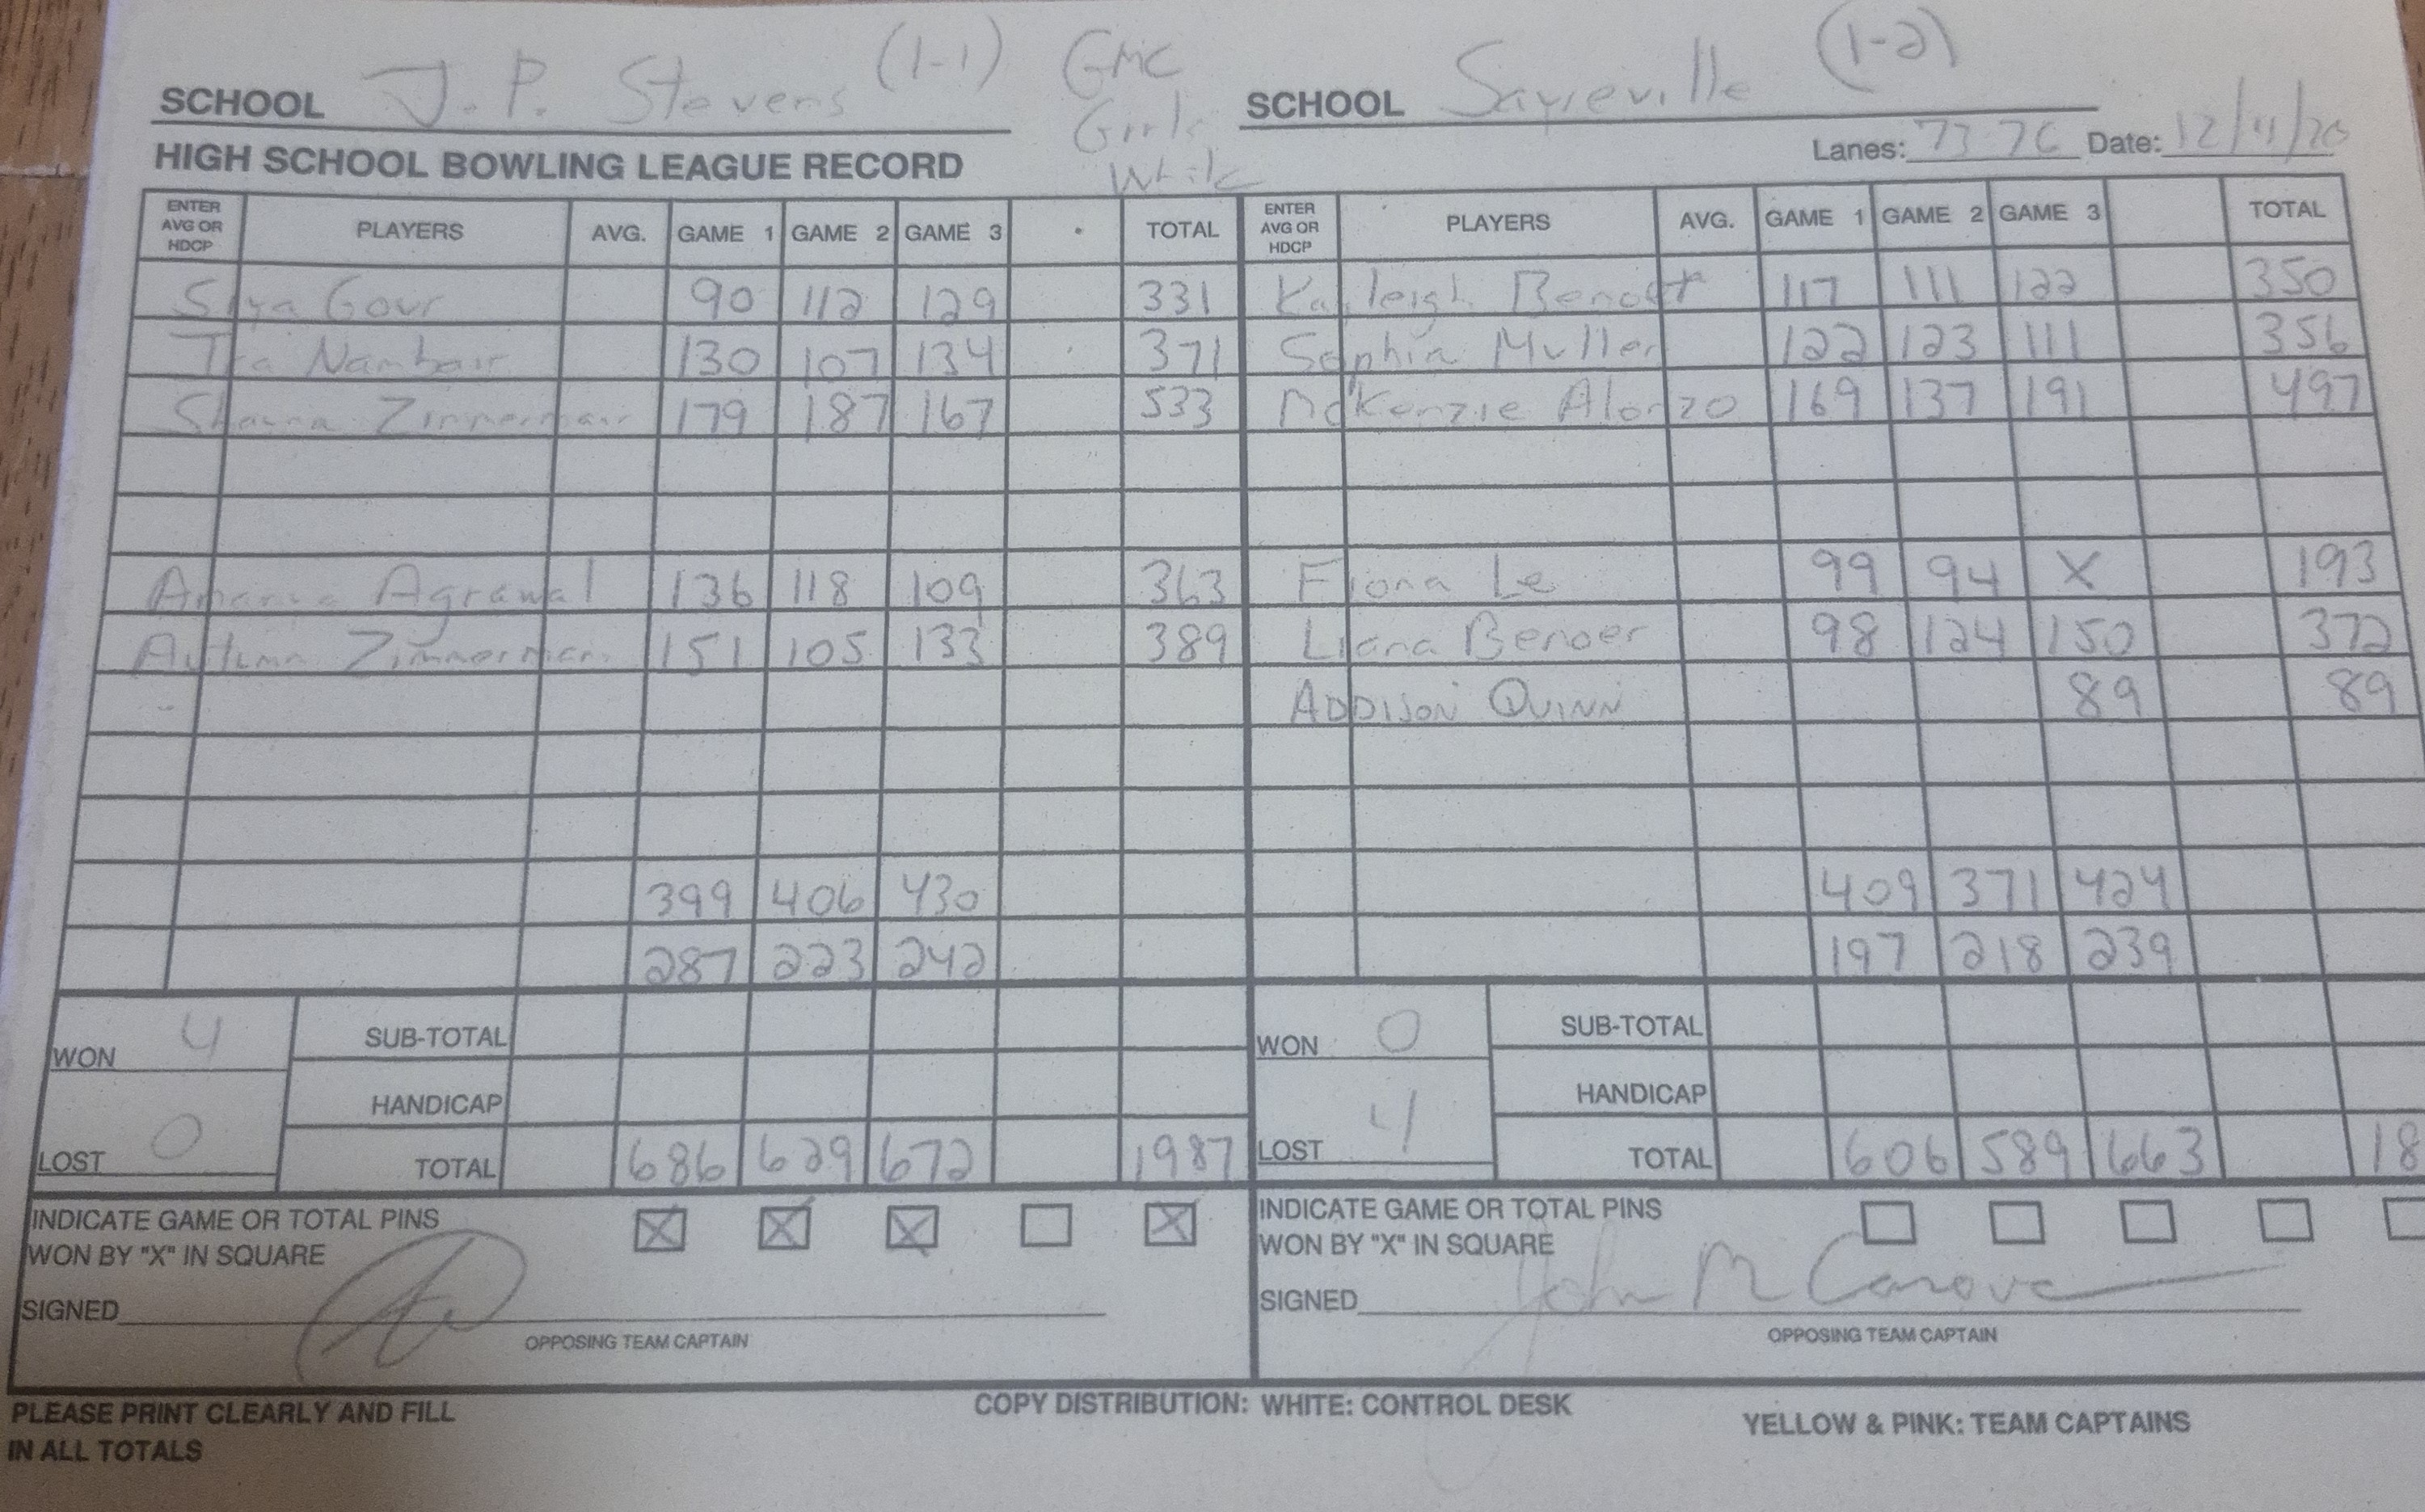 SCHOOL J. P. Stevens (1-1) GMC Girls White SCHOOL Sayreville (1-2)
HIGH SCHOOL BOWLING LEAGUE RECORD Lanes: 73-76 Date: 12/11/
ENTER AVG OR HDCP PLAYERS AVG. GAME 1 GAME 2 GAME 3 TOTAL ENTER AVG OR HDCP PLAYERS AVG. GAME 1 GAME 2 GAME 3 TOTAL
Siya Gour 90 112 129 331 Kayleigh Benoit 117 111 122 350
Nambair 130 107 134 371 Sophia Muller 122 123 111 356
Shayna Zimmerman 179 187 167 533 McKenzie Alonzo 169 137 191 497
Agrawal 136 118 109 363 Fiona Le 99 94 X 193
Autumn Zimmerman 151 105 133 389 Liana Bender 98 124 150 372
ADDISON QUINN 89 89
399 406 430 409 371 424
287 223 242 197 218 239
WON 4 SUB-TOTAL WON 0 SUB-TOTAL
HANDICAP HANDICAP
LOST 0 TOTAL 686 629 672 1987 LOST 4 TOTAL 606 589 663 18
INDICATE GAME OR TOTAL PINS X X X X INDICATE GAME OR TOTAL PINS
WON BY "X" IN SQUARE WON BY "X" IN SQUARE
SIGNED SIGNED John M
OPPOSING TEAM CAPTAIN OPPOSING TEAM CAPTAIN
PLEASE PRINT CLEARLY AND FILL COPY DISTRIBUTION: WHITE: CONTROL DESK YELLOW & PINK: TEAM CAPTAINS
IN ALL TOTALS